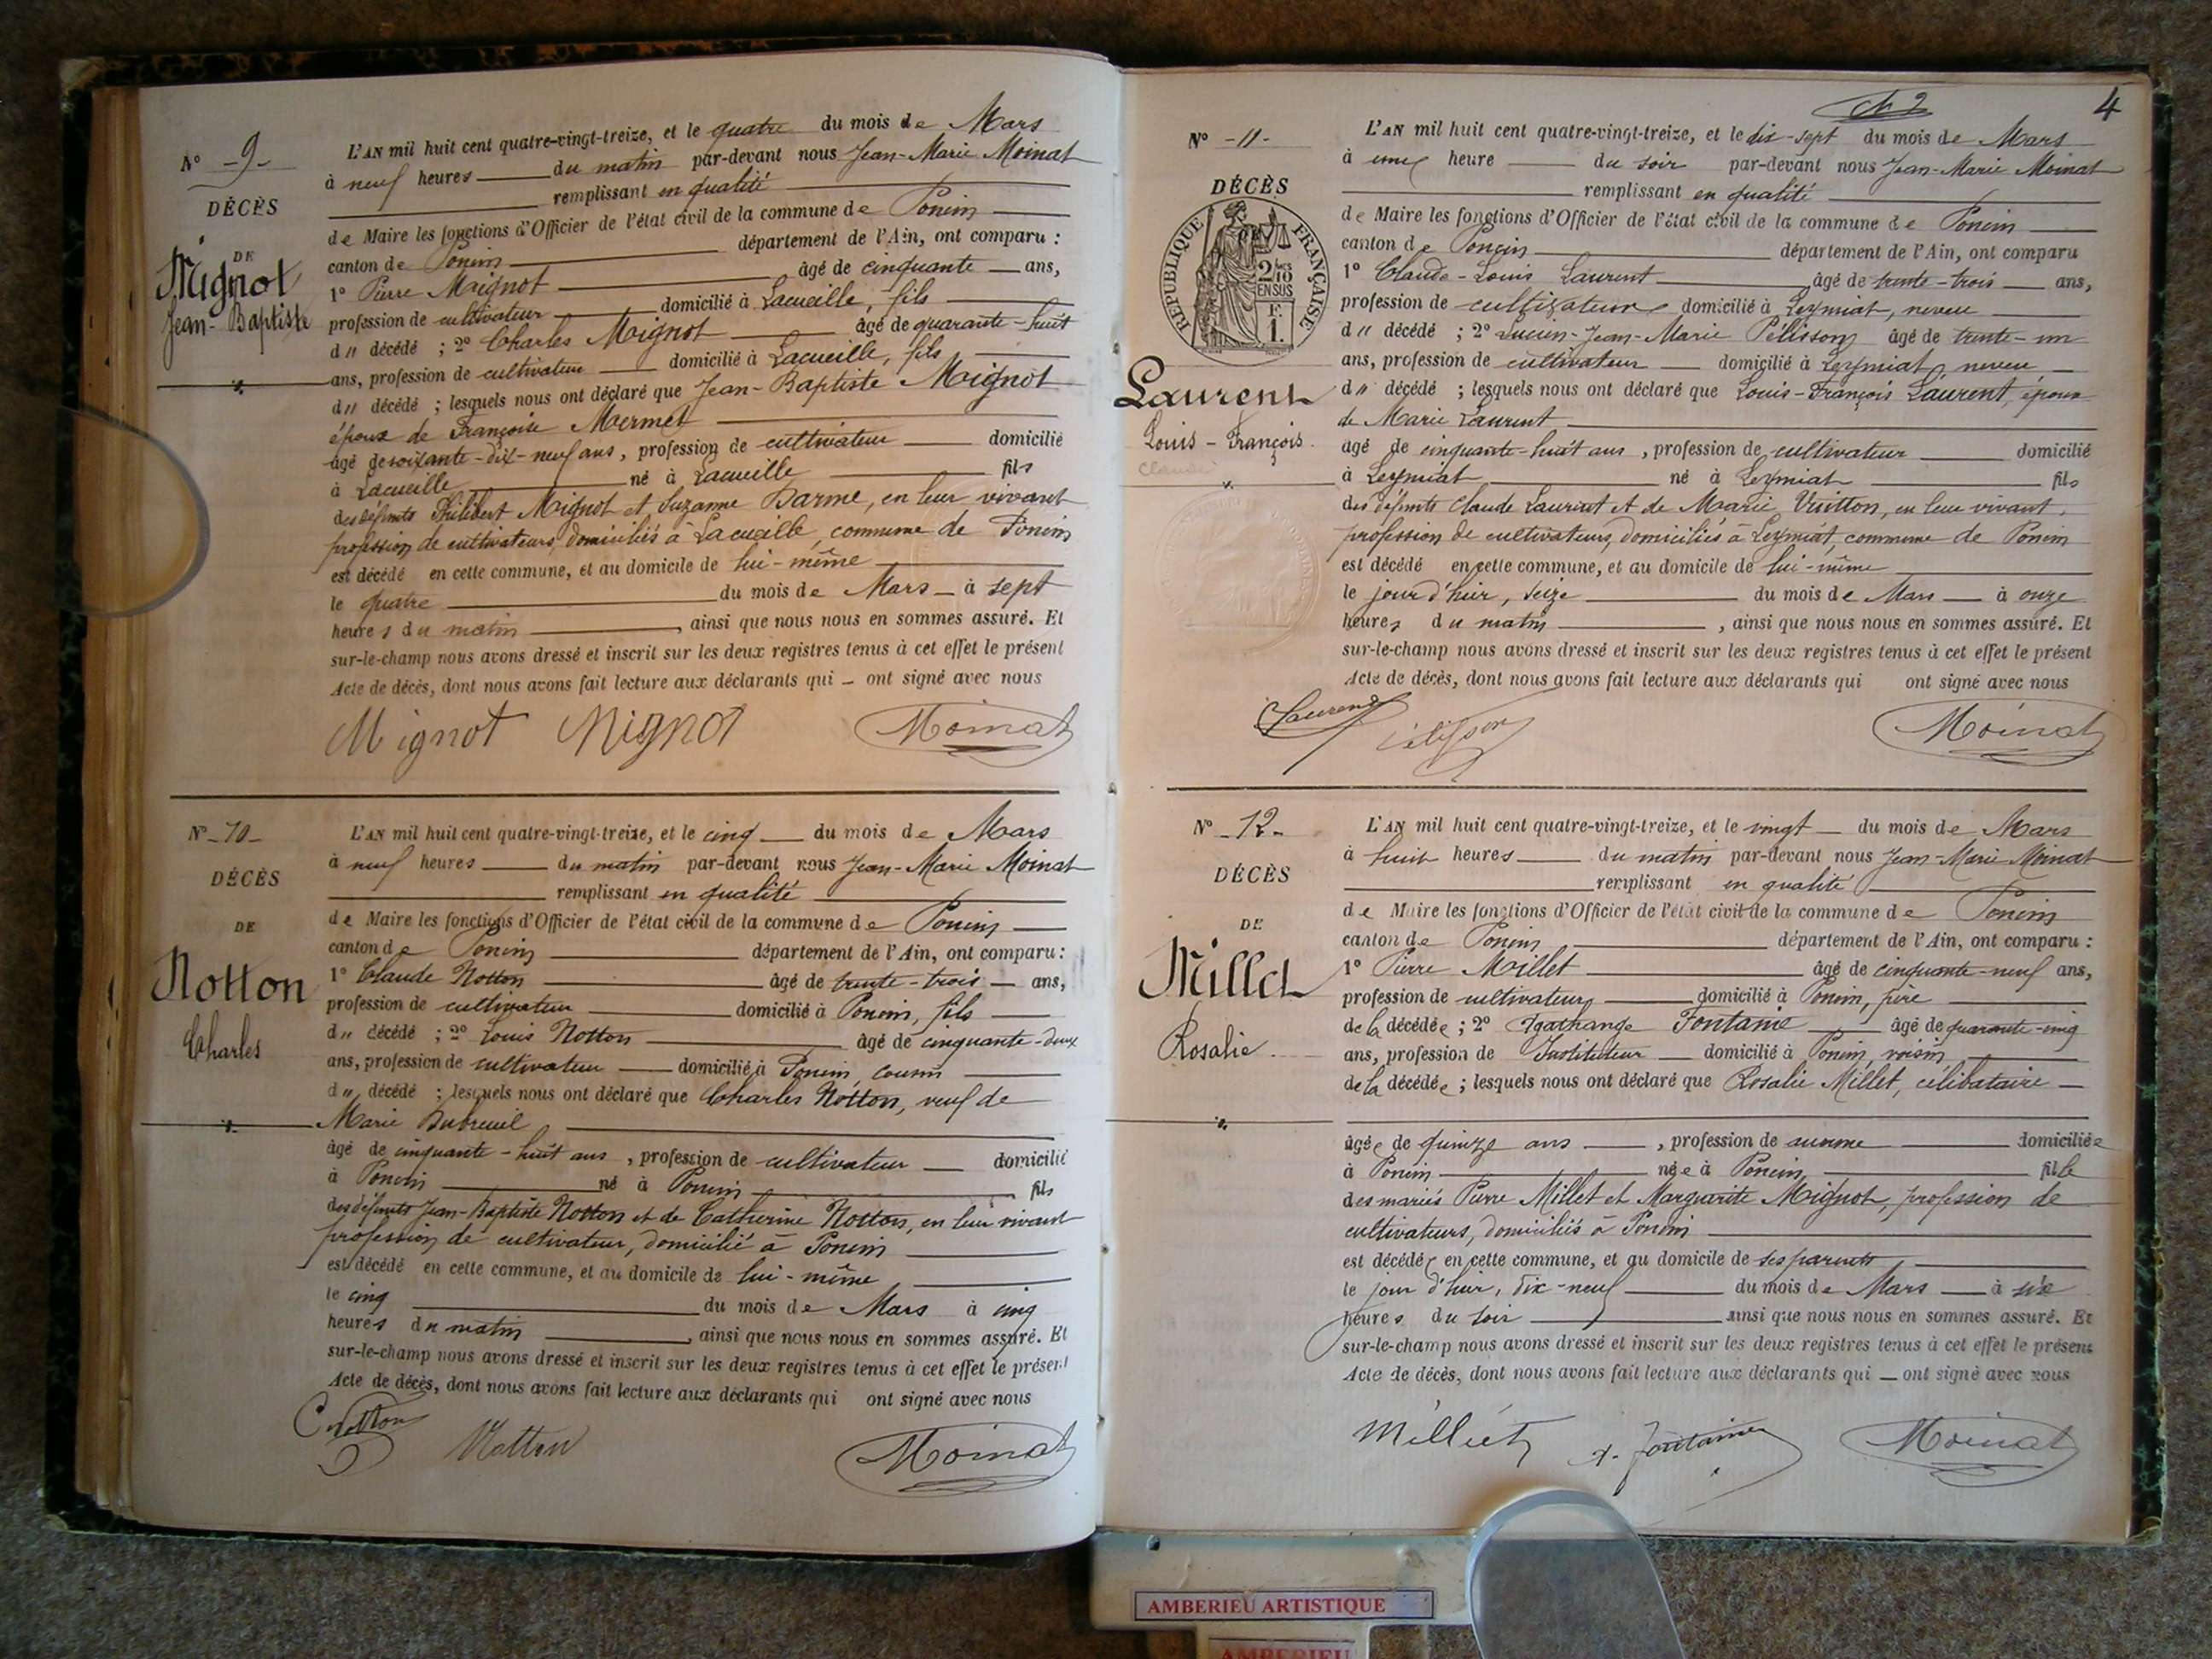 N° -9-
DÉCÈS
DE
Mignot
Jean-Baptiste
L'AN mil huit cent quatre-vingt-treize, et le quatre du mois de Mars
à neuf heures du matin par-devant nous Jean-Marie Moinat
remplissant en qualité
de Maire les fonctions d'Officier de l'état civil de la commune de Poncin
canton de Poncin département de l'Ain, ont comparu :
1° Pierre Mignot âgé de cinquante ans,
profession de cultivateur domicilié à Lacueille, fils
d" décédé ; 2° Charles Mignot âgé de quarante-huit
ans, profession de cultivateur domicilié à Lacueille, fils
d" décédé ; lesquels nous ont déclaré que Jean-Baptiste Mignot
époux de Françoise Mermet
âgé de soixante-dix-neuf ans, profession de cultivateur domicilié
à Lacueille né à Lacueille fils
des défunts Philibert Mignot et Suzanne Darme, en leur vivant
profession de cultivateurs, domiciliés à Lacueille, commune de Poncin
est décédé en cette commune, et au domicile de lui-même
le quatre du mois de Mars à sept
heures du matin, ainsi que nous nous en sommes assuré. Et
sur-le-champ nous avons dressé et inscrit sur les deux registres tenus à cet effet le présent
Acte de décès, dont nous avons fait lecture aux déclarants qui ont signé avec nous
Mignot Mignot Moinat
N° -10-
DÉCÈS
DE
Notton
Charles
L'AN mil huit cent quatre-vingt-treize, et le cinq du mois de Mars
à neuf heures du matin par-devant nous Jean-Marie Moinat
remplissant en qualité
de Maire les fonctions d'Officier de l'état civil de la commune de Poncin
canton de Poncin département de l'Ain, ont comparu :
1° Claude Notton âgé de trente-trois ans,
profession de cultivateur domicilié à Poncin, fils
d" décédé ; 2° Louis Notton âgé de cinquante-deux
ans, profession de cultivateur domicilié à Poncin, cousin
d" décédé ; lesquels nous ont déclaré que Charles Notton, veuf de
Marie Dubreuil
âgé de cinquante-huit ans, profession de cultivateur domicilié
à Poncin né à Poncin fils
des défunts Jean-Baptiste Notton et de Catherine Notton, en leur vivant
profession de cultivateur, domicilié à Poncin
est décédé en cette commune, et au domicile de lui-même
le cinq du mois de Mars à cinq
heures du matin, ainsi que nous nous en sommes assuré. Et
sur-le-champ nous avons dressé et inscrit sur les deux registres tenus à cet effet le présent
Acte de décès, dont nous avons fait lecture aux déclarants qui ont signé avec nous
C Notton Notton Moinat
4
N° -11-
DÉCÈS
RÉPUBLIQUE FRANÇAISE
2/10 EN SUS
F. 1.
Laurent
Louis-François
Claude
L'AN mil huit cent quatre-vingt-treize, et le dix-sept du mois de Mars
à une heure du soir par-devant nous Jean-Marie Moinat
remplissant en qualité
de Maire les fonctions d'Officier de l'état civil de la commune de Poncin
canton de Poncin département de l'Ain, ont comparu
1° Claude-Louis Laurent âgé de trente-trois ans,
profession de cultivateur domicilié à Leymiat, neveu
d" décédé ; 2° Lucien-Jean-Marie Pélisson âgé de trente-un
ans, profession de cultivateur domicilié à Leymiat, neveu
d" décédé ; lesquels nous ont déclaré que Louis-François Laurent, époux
de Marie Laurent
âgé de cinquante-huit ans, profession de cultivateur domicilié
à Leymiat né à Leymiat fils
des défunts Claude Laurent et de Marie Vuitton, en leur vivant,
profession de cultivateurs, domiciliés à Leymiat, commune de Poncin
est décédé en cette commune, et au domicile de lui-même
le jour d'hier, seize du mois de Mars à onze
heures du matin, ainsi que nous nous en sommes assuré. Et
sur-le-champ nous avons dressé et inscrit sur les deux registres tenus à cet effet le présent
Acte de décès, dont nous avons fait lecture aux déclarants qui ont signé avec nous
Laurent Pélisson Moinat
N° -12-
DÉCÈS
DE
Millet
Rosalie
L'AN mil huit cent quatre-vingt-treize, et le vingt du mois de Mars
à huit heures du matin par-devant nous Jean-Marie Moinat
remplissant en qualité
de Maire les fonctions d'Officier de l'état civil de la commune de Poncin
canton de Poncin département de l'Ain, ont comparu :
1° Pierre Millet âgé de cinquante-neuf ans,
profession de cultivateur domicilié à Poncin, père
de la décédée ; 2° Agathange Fontaine âgé de quarante-cinq
ans, profession de Instituteur domicilié à Poncin, voisin
de la décédée ; lesquels nous ont déclaré que Rosalie Millet, célibataire
âgée de quinze ans, profession de aucune domiciliée
à Poncin née à Poncin, fille
des mariés Pierre Millet et Marguerite Mignot, profession de
cultivateurs, domiciliés à Poncin
est décédée en cette commune, et au domicile de ses parents
le jour d'hier, dix-neuf du mois de Mars à six
heures du soir ainsi que nous nous en sommes assuré. Et
sur-le-champ nous avons dressé et inscrit sur les deux registres tenus à cet effet le présent
Acte de décès, dont nous avons fait lecture aux déclarants qui ont signé avec nous
Milliet A. Fontaine Moinat
AMBERIEU ARTISTIQUE
AMBERIEU